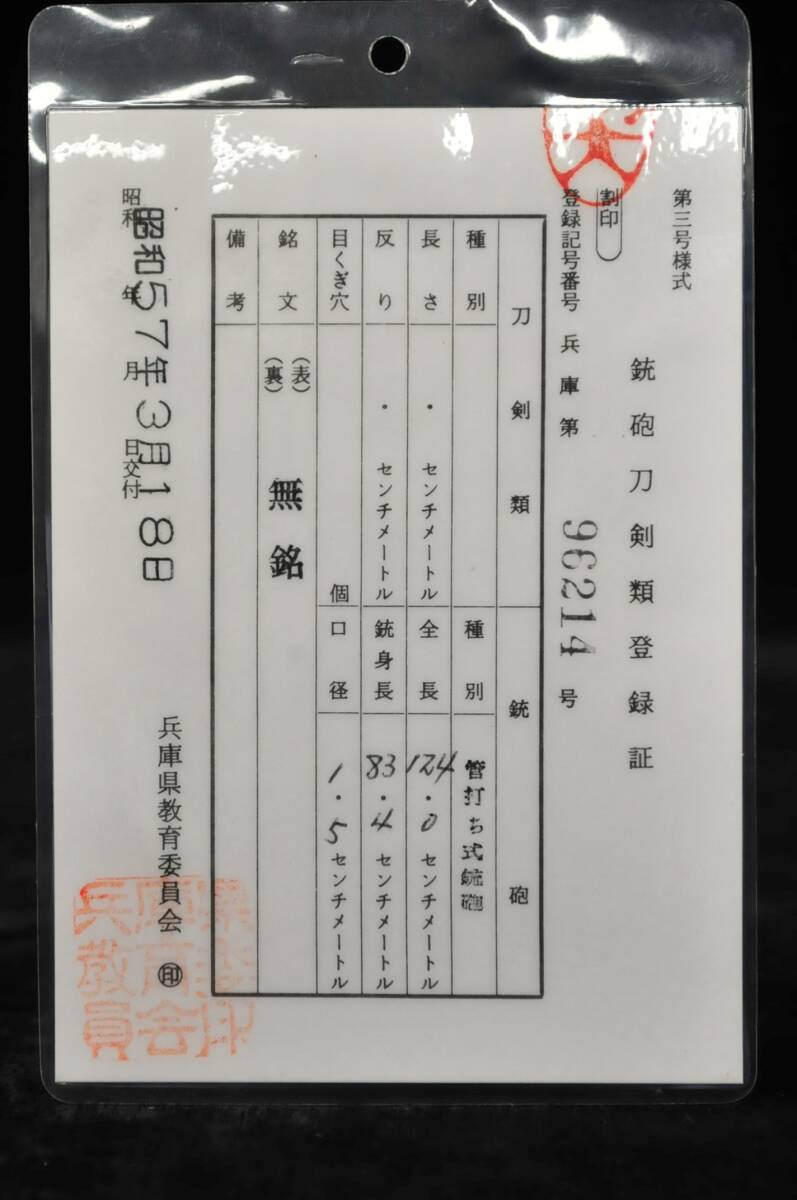 第三号様式
銃砲刀剣類登録証
割印
登録記号番号 兵庫第 96214 号
刀剣類
銃砲
種別
種別 管打ち式銃砲
長さ ・ センチメートル
全長 124・0 センチメートル
反り ・ センチメートル
銃身長 83・4 センチメートル
目くぎ穴 個
口径 1・5 センチメートル
銘文 (表) (裏) 無銘
備考
昭和 年 月 日交付
昭和57年3月18日
兵庫県教育委員会 ㊞
兵庫県
教育委
員会印